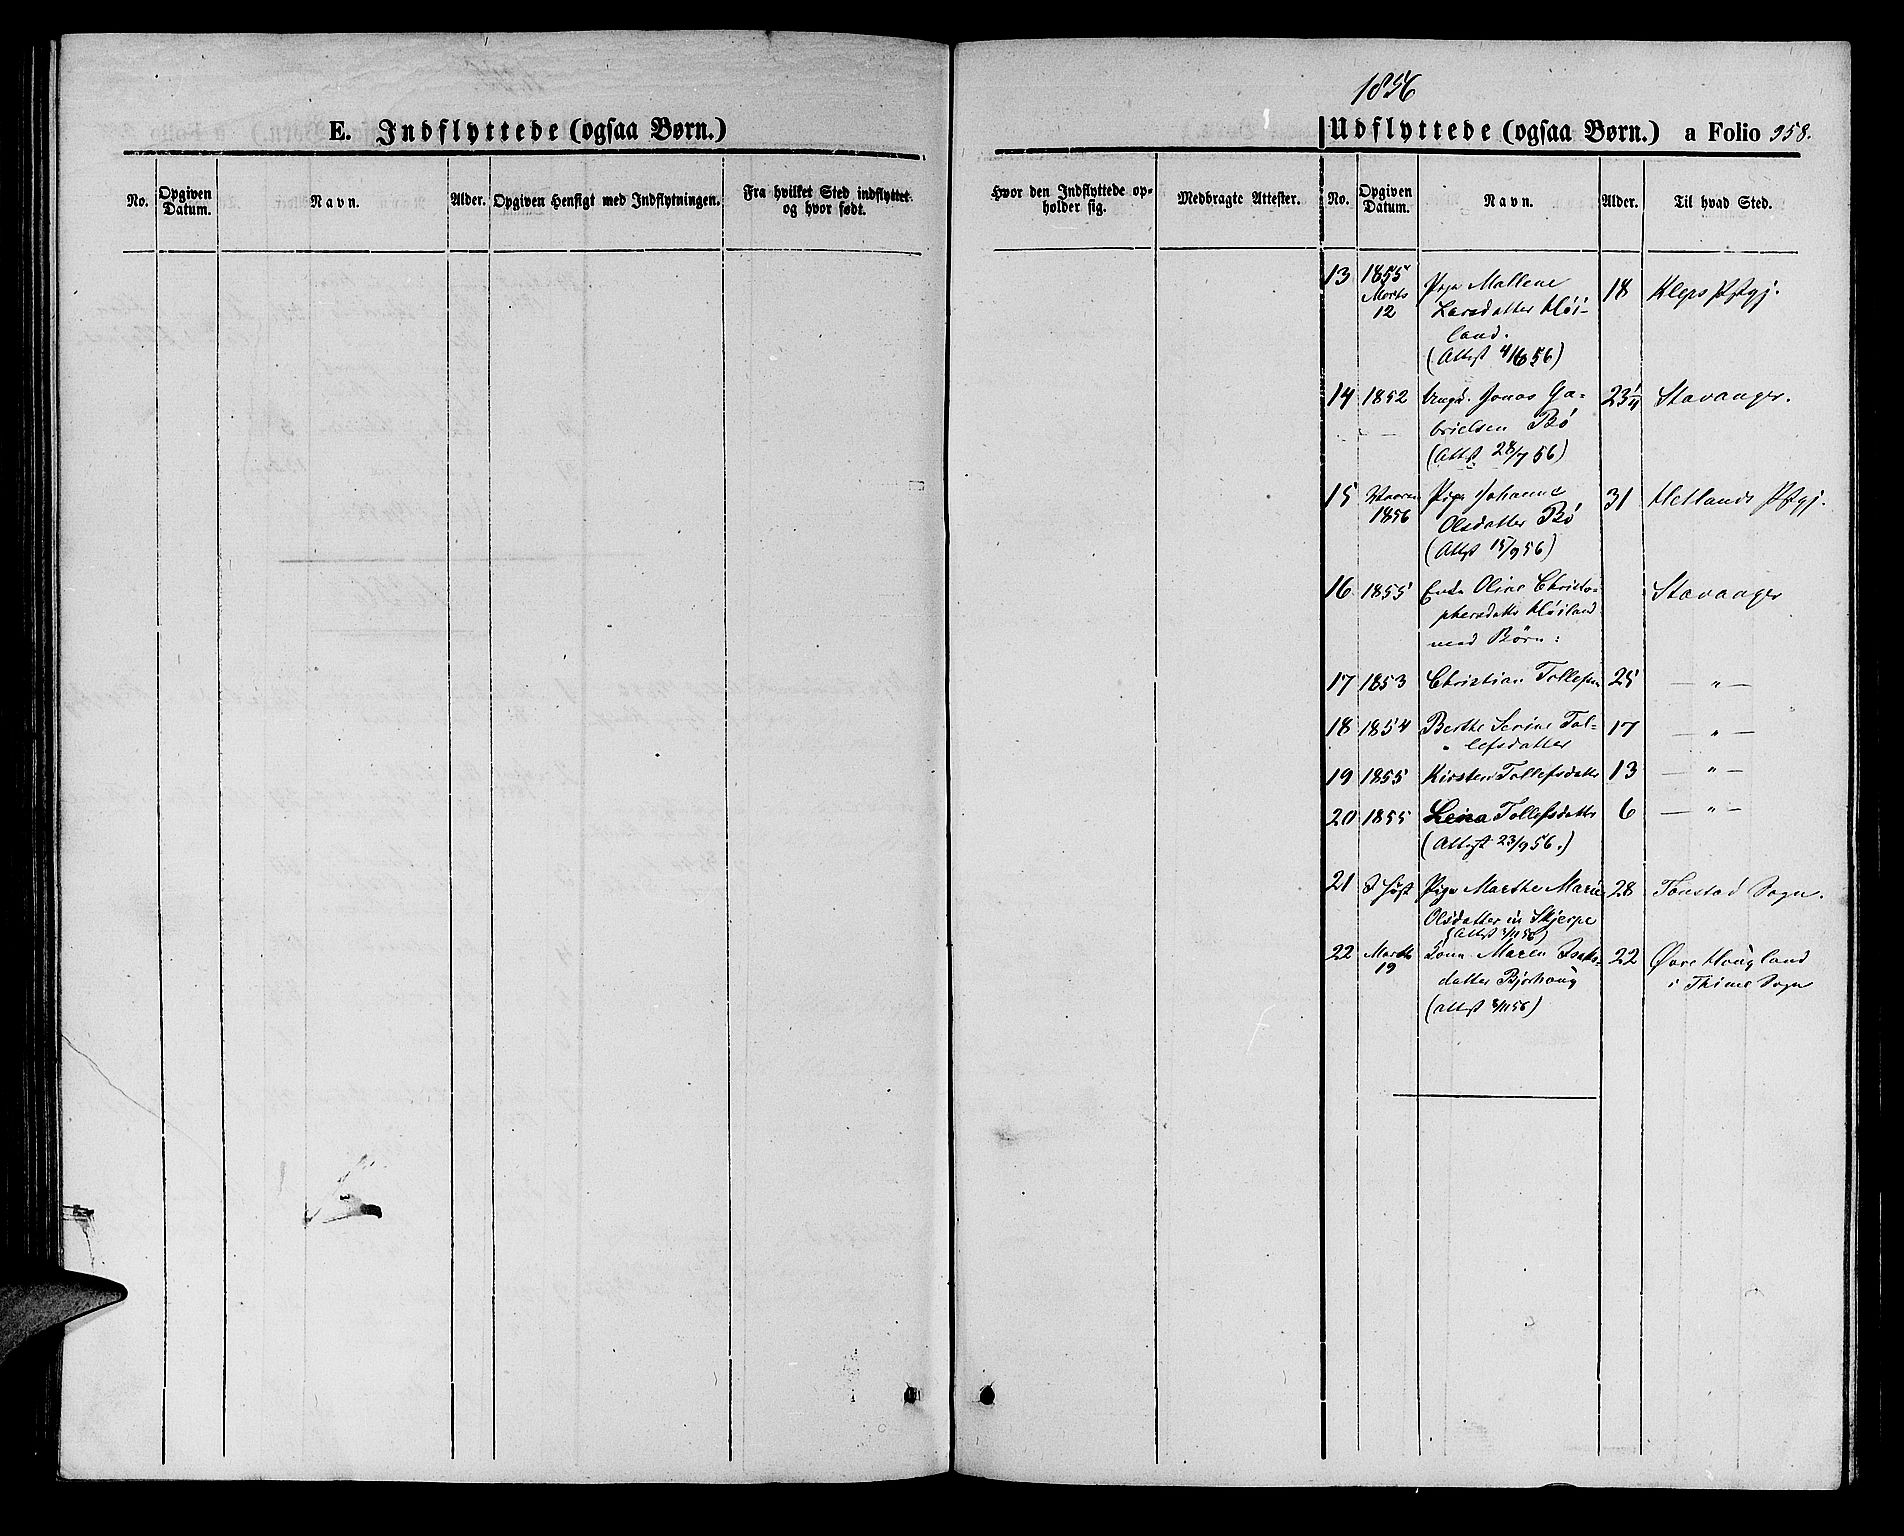 1856
E. Indflyttede (ogsaa Børn.)
Udflyttede (ogsaa Børn.) a Folio 958.
No.
Opgiven Datum.
Navn.
Alder.
Opgiven Hensigt med Indflytningen.
Fra hvilket Sted indflyttet og hvor født.
Hvor den Indflyttede opholder sig.
Medbragte Attester.
No.
Opgiven Datum.
Navn.
Alder.
Til hvad Sted.
13 1855 Pige Mallene 18 Kleps Pstgj.
Marts Larsdatter Høi-
12 land.
(Attest 4/10 56)
14 1852 Ungk. Jonas Ga- 23 Stavanger.
brielsen Bø
(Attst 28/7 56)
15 Vaaren Pige Johanne 31 Hetlands Pstgj.
1856 Olsdatter Bø
(Attst 15/9 56)
16 1855 Enke Oline Christo- Stavanger
phersdattr Høiland
med Børn:
17 1853 Christian Tollefsen 25 — " —
18 1854 Berthe Serine Tol- 17 — " —
lefsdatter
19 1855 Kirsten Tollefsdatter 13 — " —
20 1855 Lena Tollefsdatter 6 — " —
(Attest 23/9 56.)
21 I Høst Pige Marthe Marie 28 Tonstad Sogn.
Olsdatter Skjerpe
(Attst /11 56)
22 Marts Maren Isaks- 22 Øvre Haugland
19 datter Bjorhoug i Thime Sogn
(attst 8/11 56)